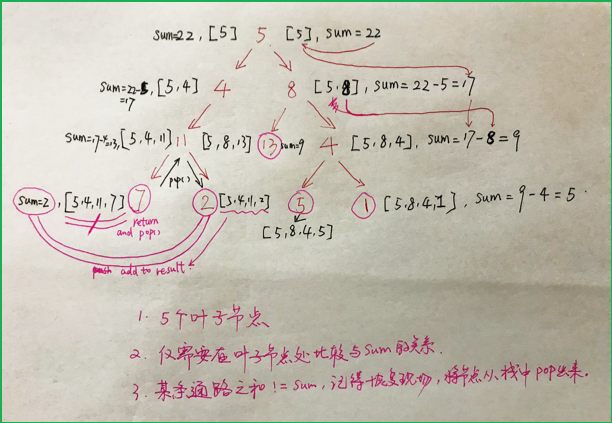 sum=22, [5] 5 [5], sum=22
sum=22-5, [5,4] 4 8 [5,8], sum=22-5=17
=17
sum=17-4=13, [5,4,11] 11 [5,8,13] 13 sum=9 4 [5,8,4], sum=17-8=9
pop()
sum=2, [5,4,11,7] 7 2 [5,4,11,2] 5 1 [5,8,4,1], sum=9-4=5
return
and pop()
[5,8,4,5]
add to result
1. 5个叶子节点
2. 仅需要在叶子节点处比较与sum的关系.
3. 某条通路之和 != sum, 记得恢复现场, 将节点从栈中pop出来.